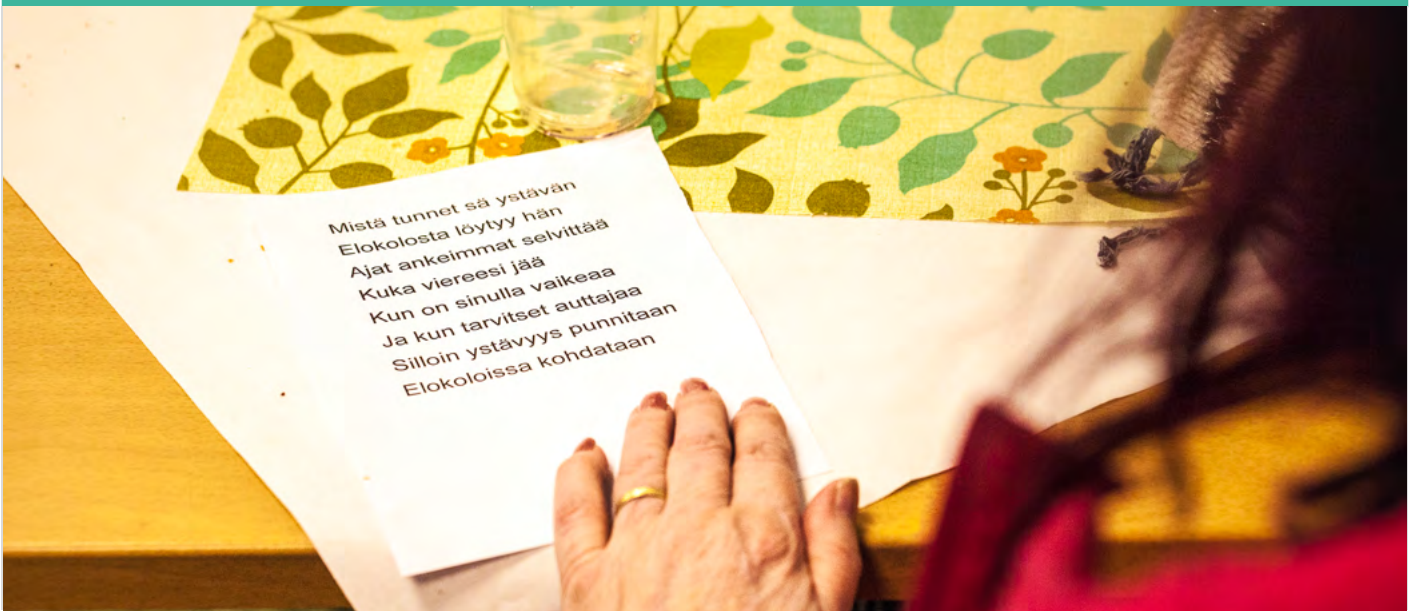 Mistä tunnet sä ystävän
Elokolosta löytyy hän
Ajat ankeimmat selvittää
Kuka viereesi jää
Kun on sinulla vaikeaa
Ja kun tarvitset auttajaa
Silloin ystävyys punnitaan
Elokoloissa kohdataan